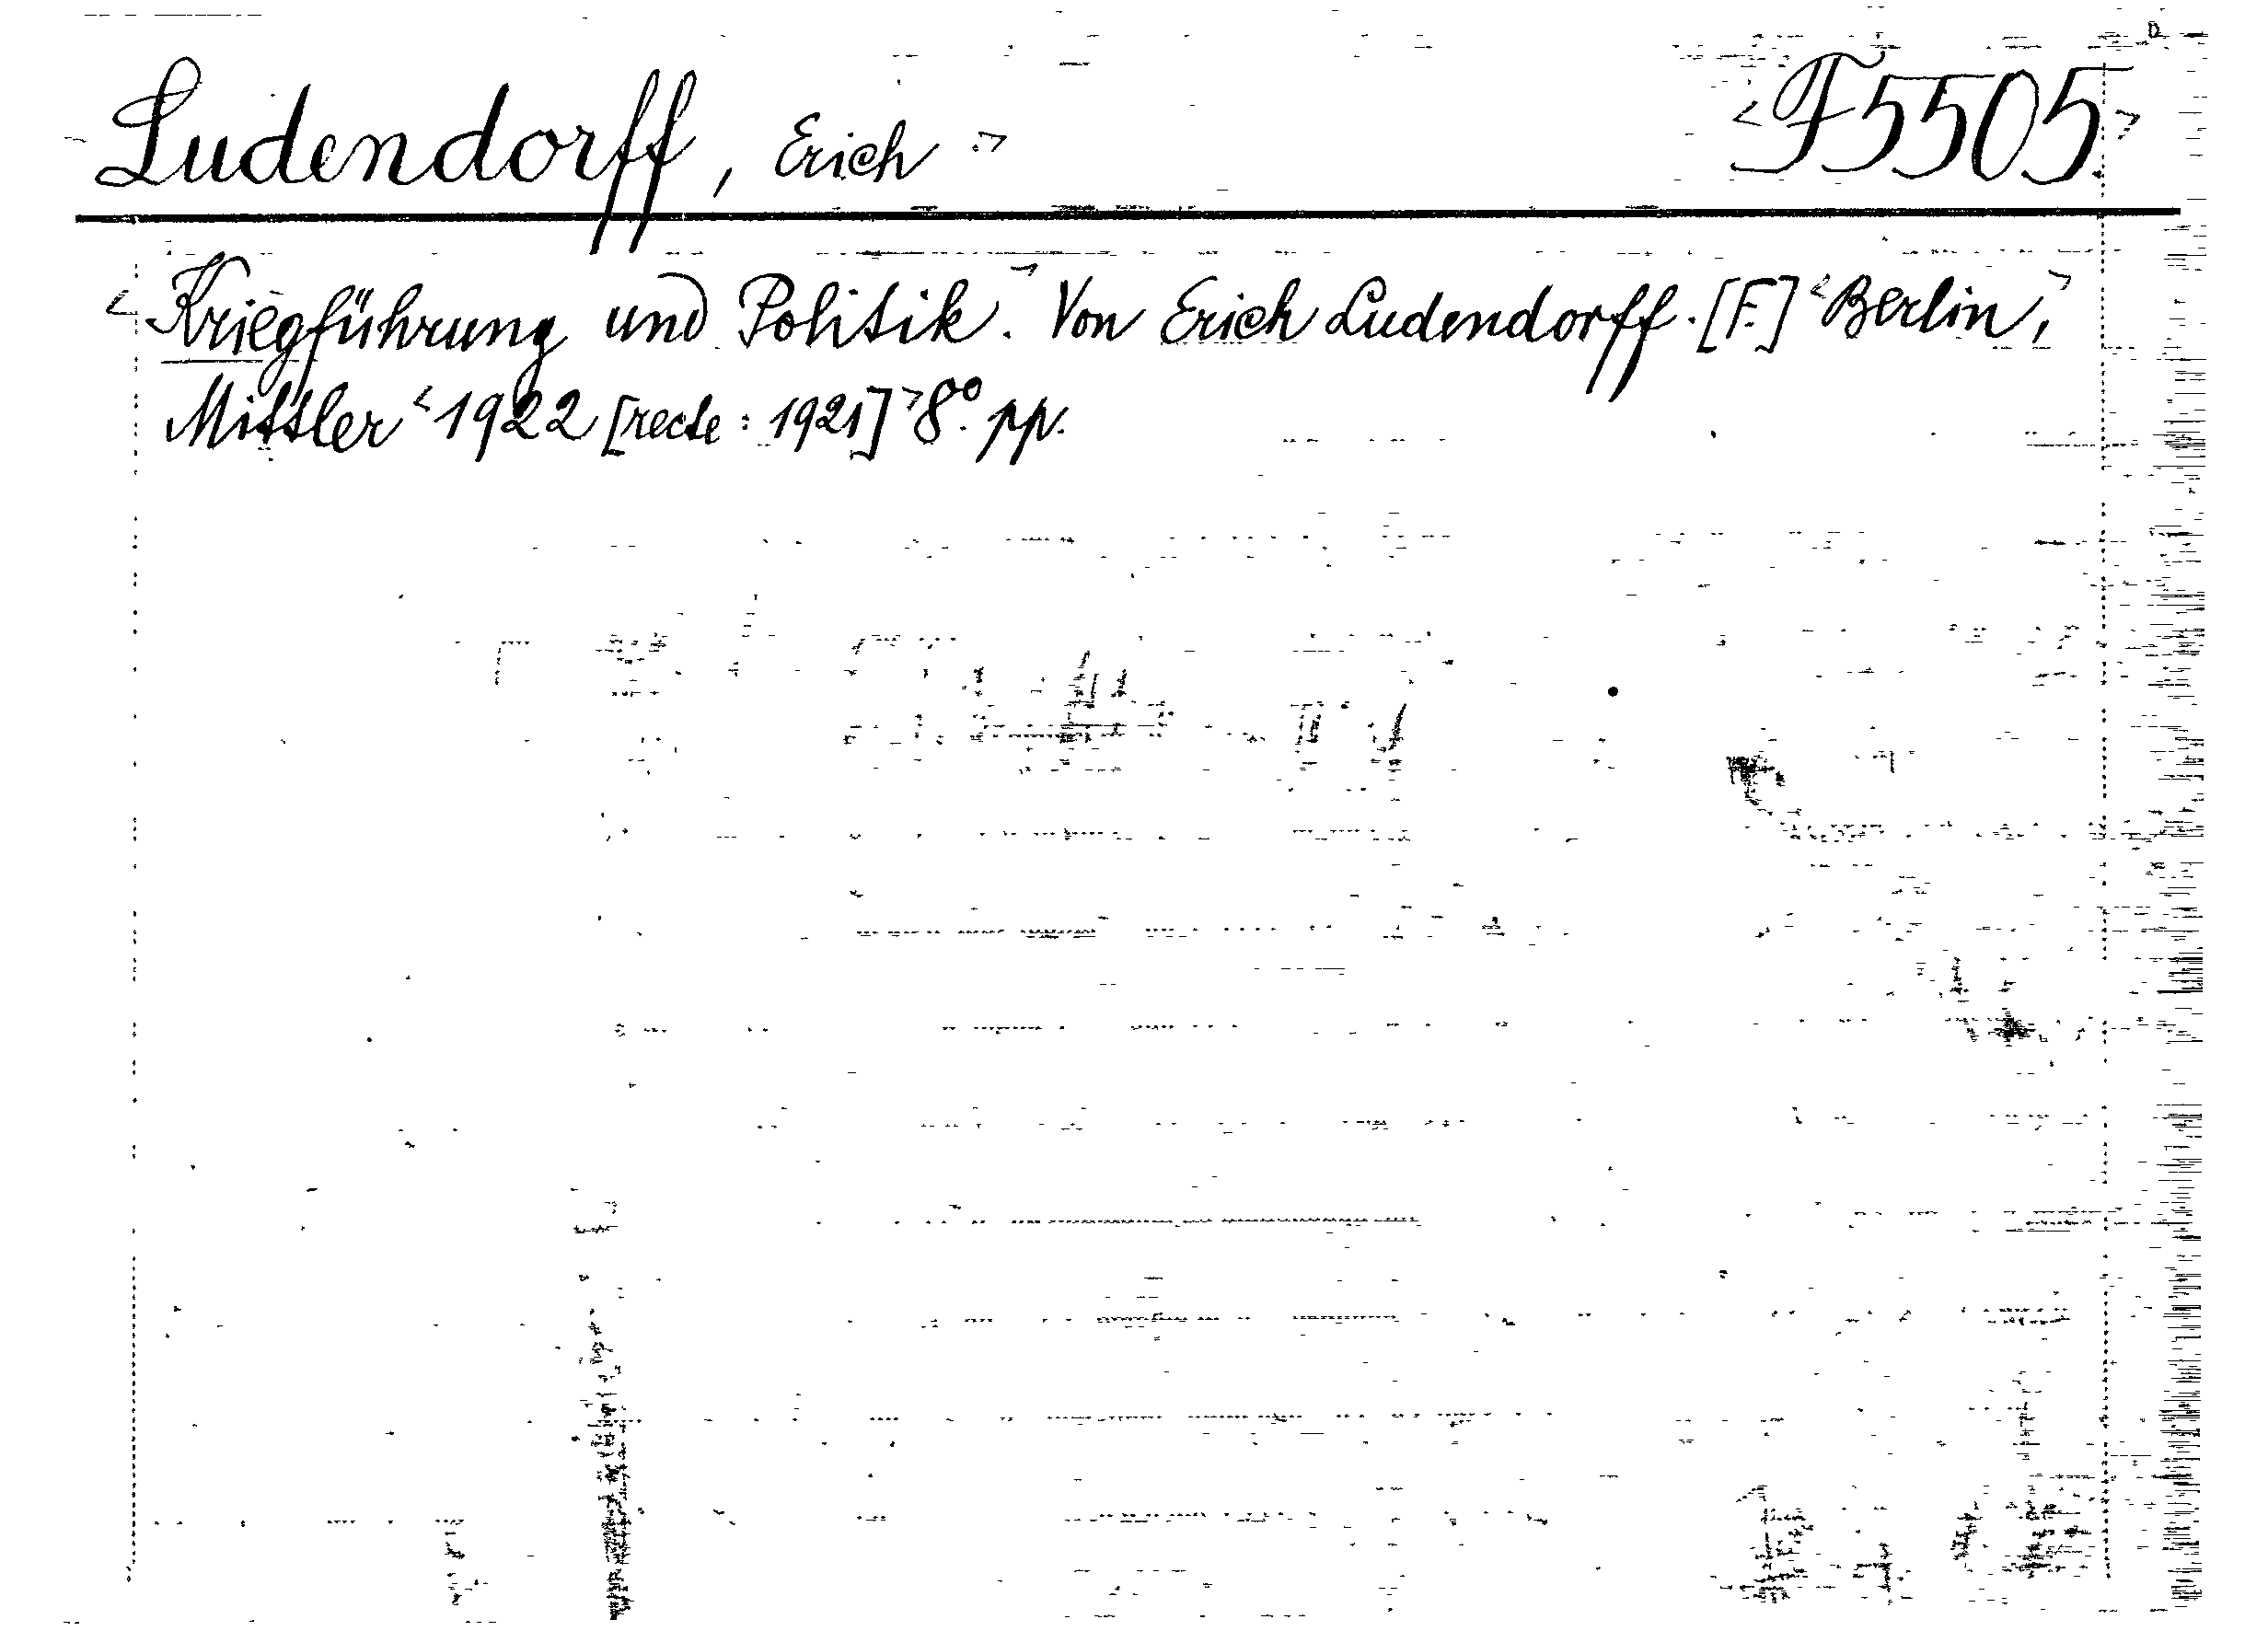 Ludendorff, Erich > <F5505.>
<Kriegführung und Politik.> Von Erich Ludendorff. [F.] <Berlin,>
Mittler <1922 [recte: 1921]> 8°. pp.